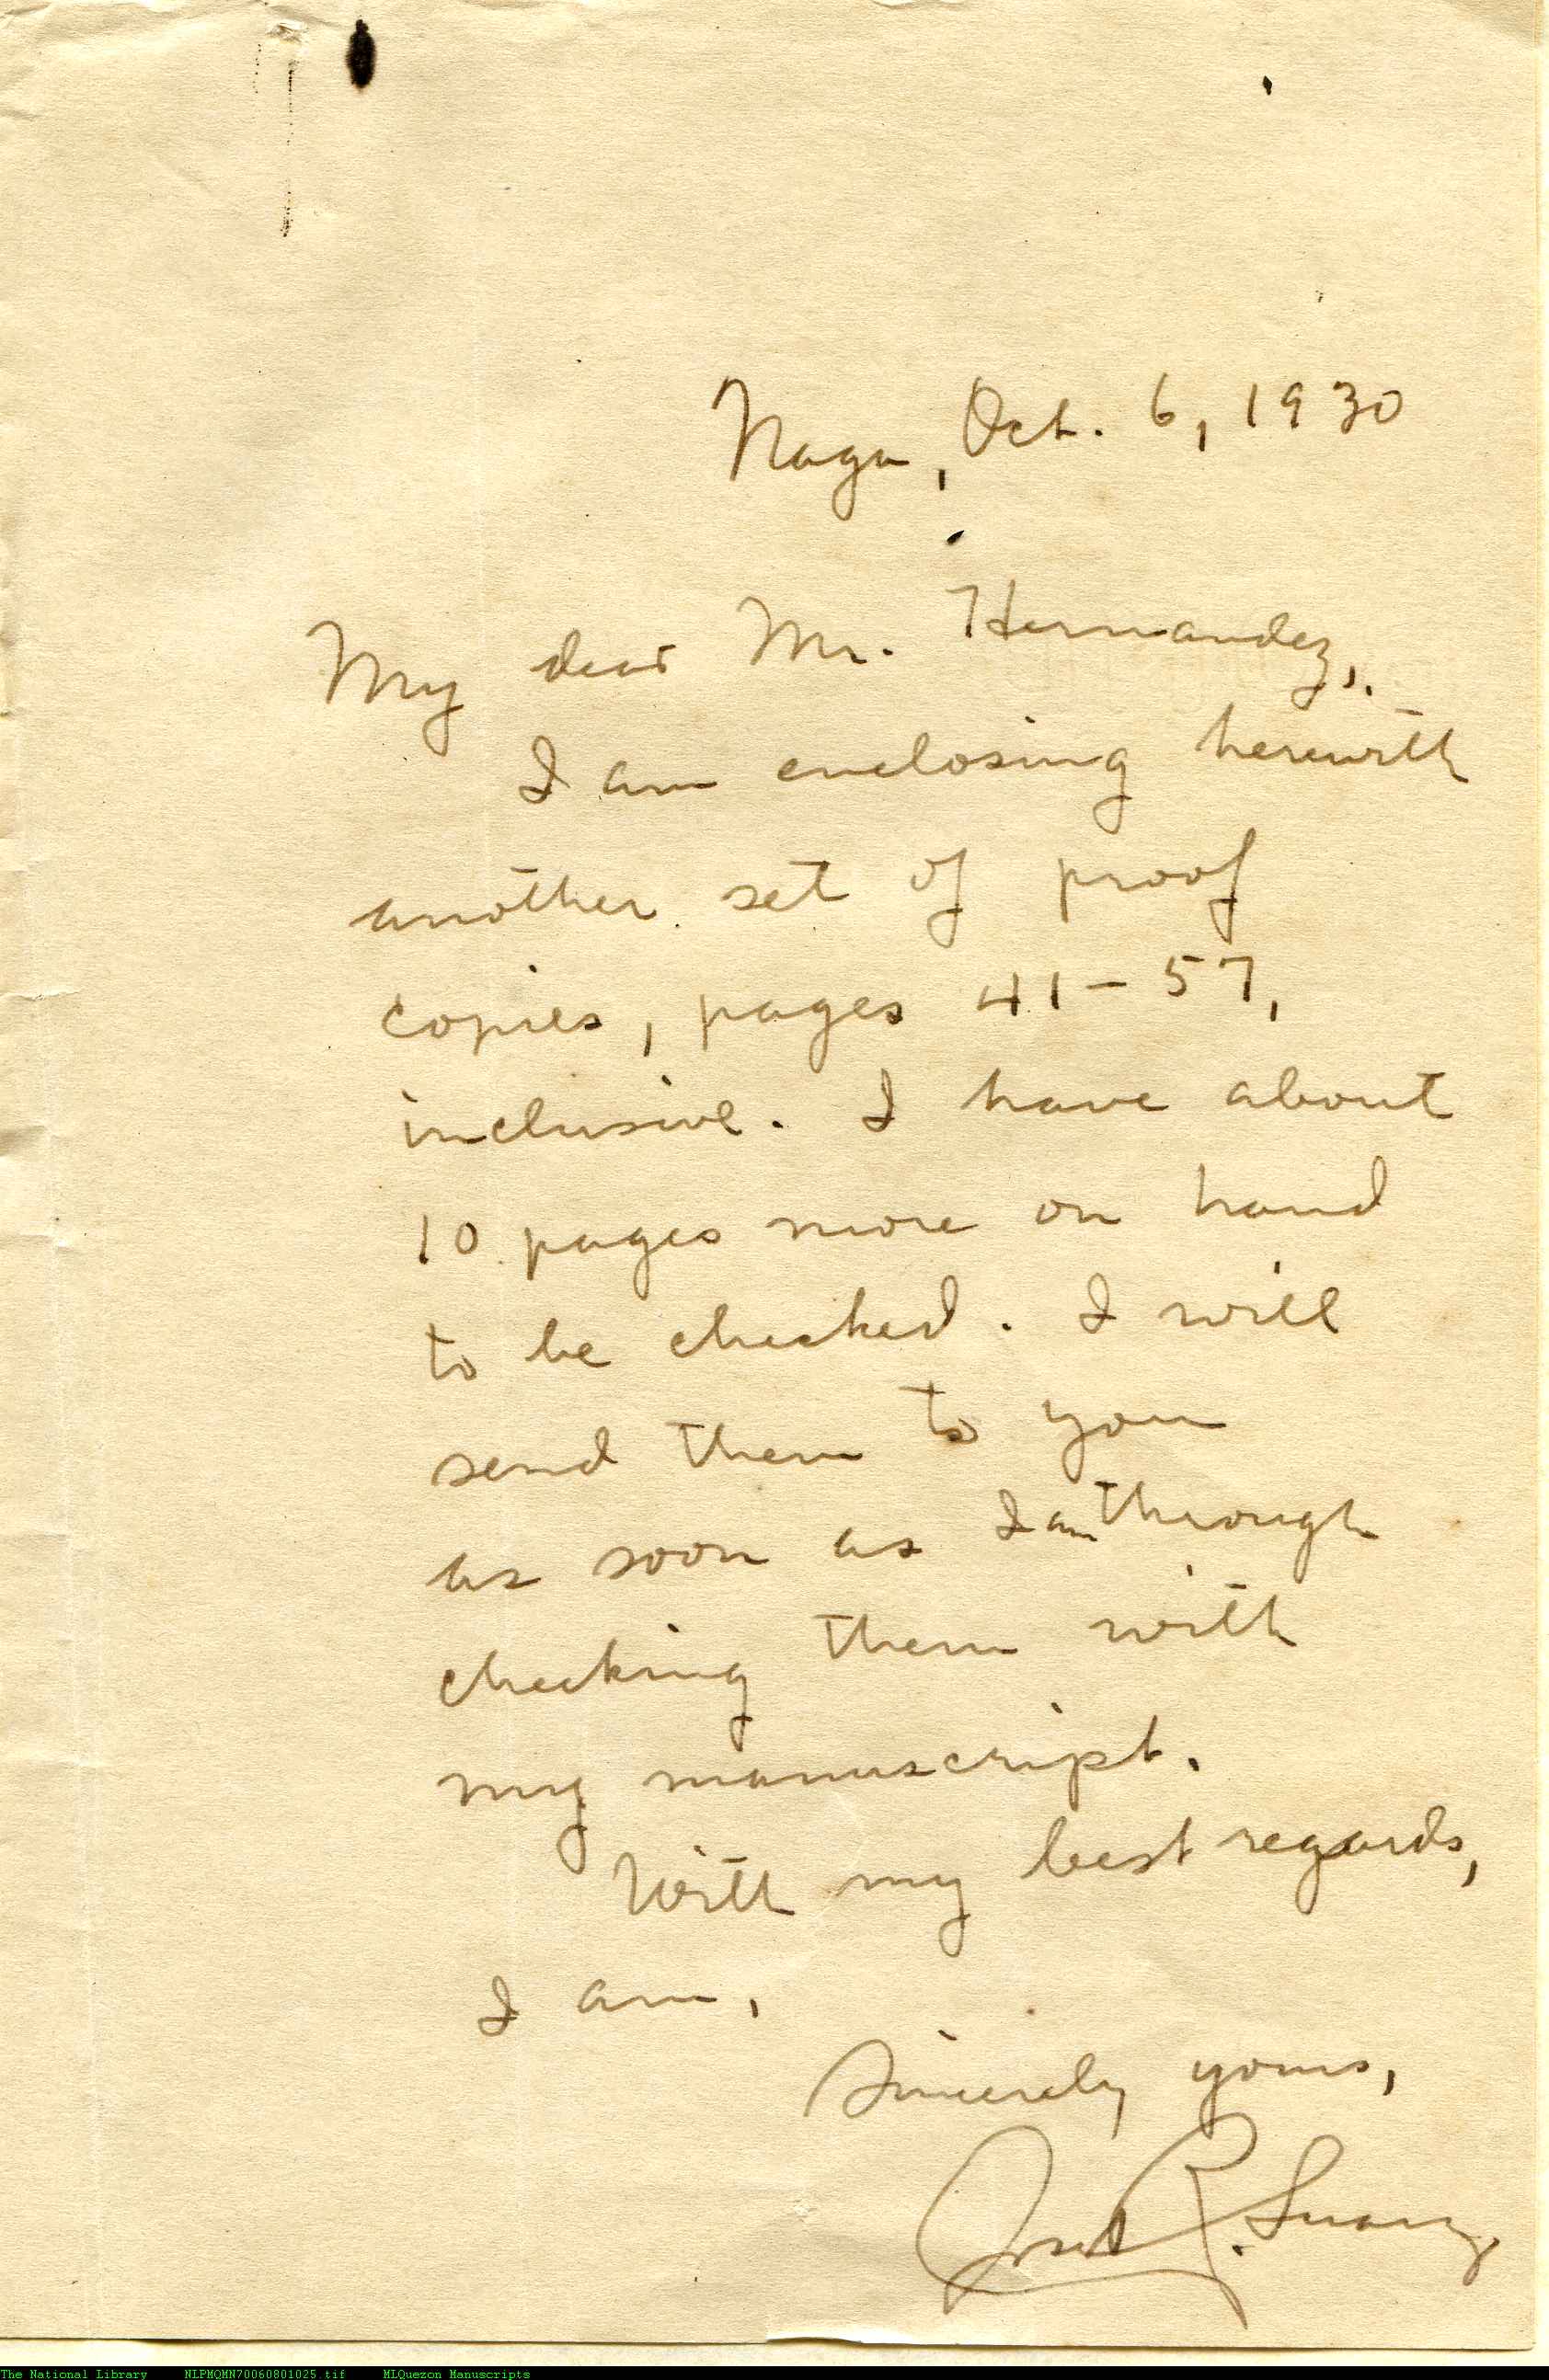 Naga, Oct. 6, 1930
My dear Mr. Hernandez,
I am enclosing herewith
another set of proof
copies, pages 41 - 57,
inclusive. I have about
10 pages more on hand
to be checked. I will
send them to you
as soon as I am through
checking them with
my manuscript.
With my best regards,
I am,
Sincerely yours,
José R. Suarez
The National Library NLPMQMN70060801025.tif MLQuezon Manuscripts